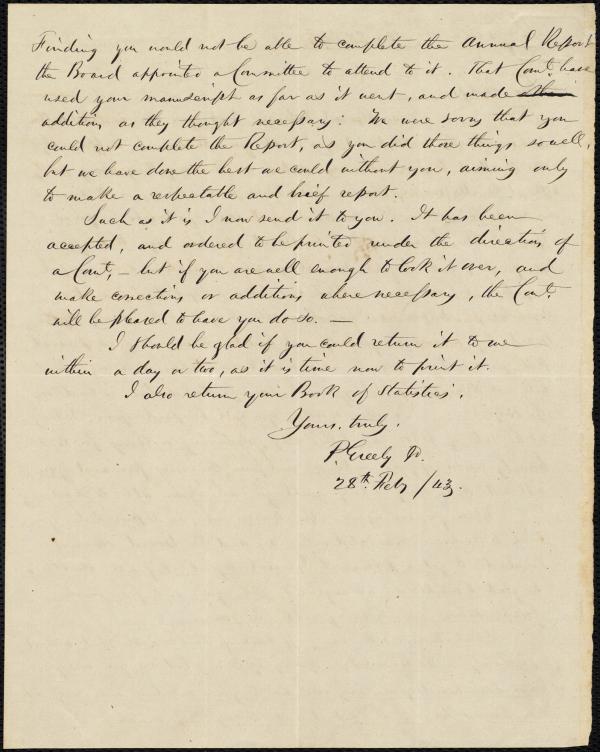 Finding you would not be able to complete the Annual Report
the Board appointed a Committee to attend to it. That Comt. have
used your manuscript as far as it went, and made
additions as they thought necessary: We were sorry that you
could not complete the Report, as you did those things so well,
but we have done the best we could without you, aiming only
to make a respectable and brief report.
Such as it is I now send it to you. It has been
accepted, and ordered to be printed under the direction of
a Comt, – but if you are well enough to look it over, and
make corrections or additions where necessary, the Comt.
will be pleased to have you do so. —
I should be glad if you could return it to me
within a day or two, as it is time now to print it.
I also return your Book of Statistics.
Yours, truly.
P. Greely Jr.
28th. Feby /43.